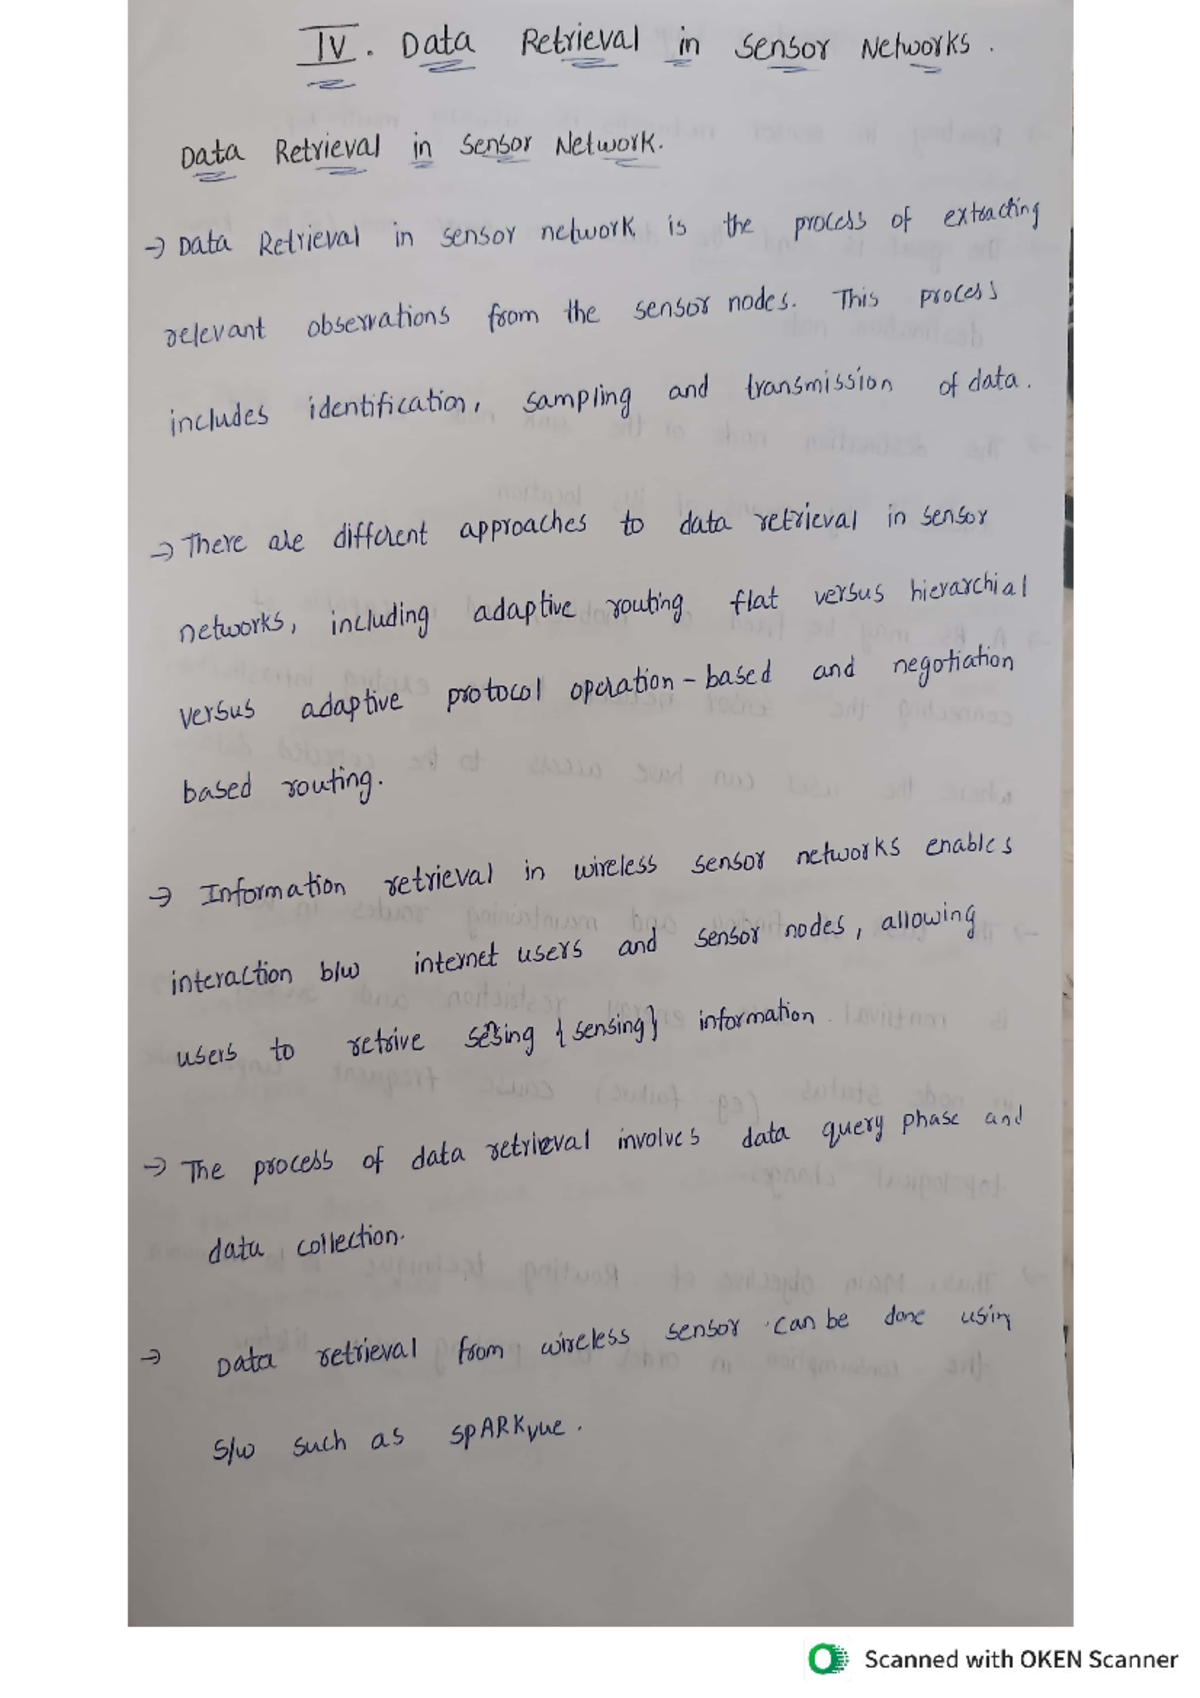 IV. Data Retrieval in Sensor Networks.
Data Retrieval in Sensor Network.
→ Data Retrieval in sensor network is the process of extracting
relevant observations from the sensor nodes. This process
includes identification, sampling and transmission of data.
→ There are different approaches to data retrieval in sensor
networks, including adaptive routing flat versus hierarchial
versus adaptive protocol operation-based and negotiation
based routing.
→ Information retrieval in wireless sensor networks enables
interaction b/w internet users and sensor nodes, allowing
users to retrive sesing {sensing} information
→ The process of data retrieval involves data query phase and
data collection.
→ Data retrieval from wireless sensor can be done using
S/w such as spARKvue.
Scanned with OKEN Scanner